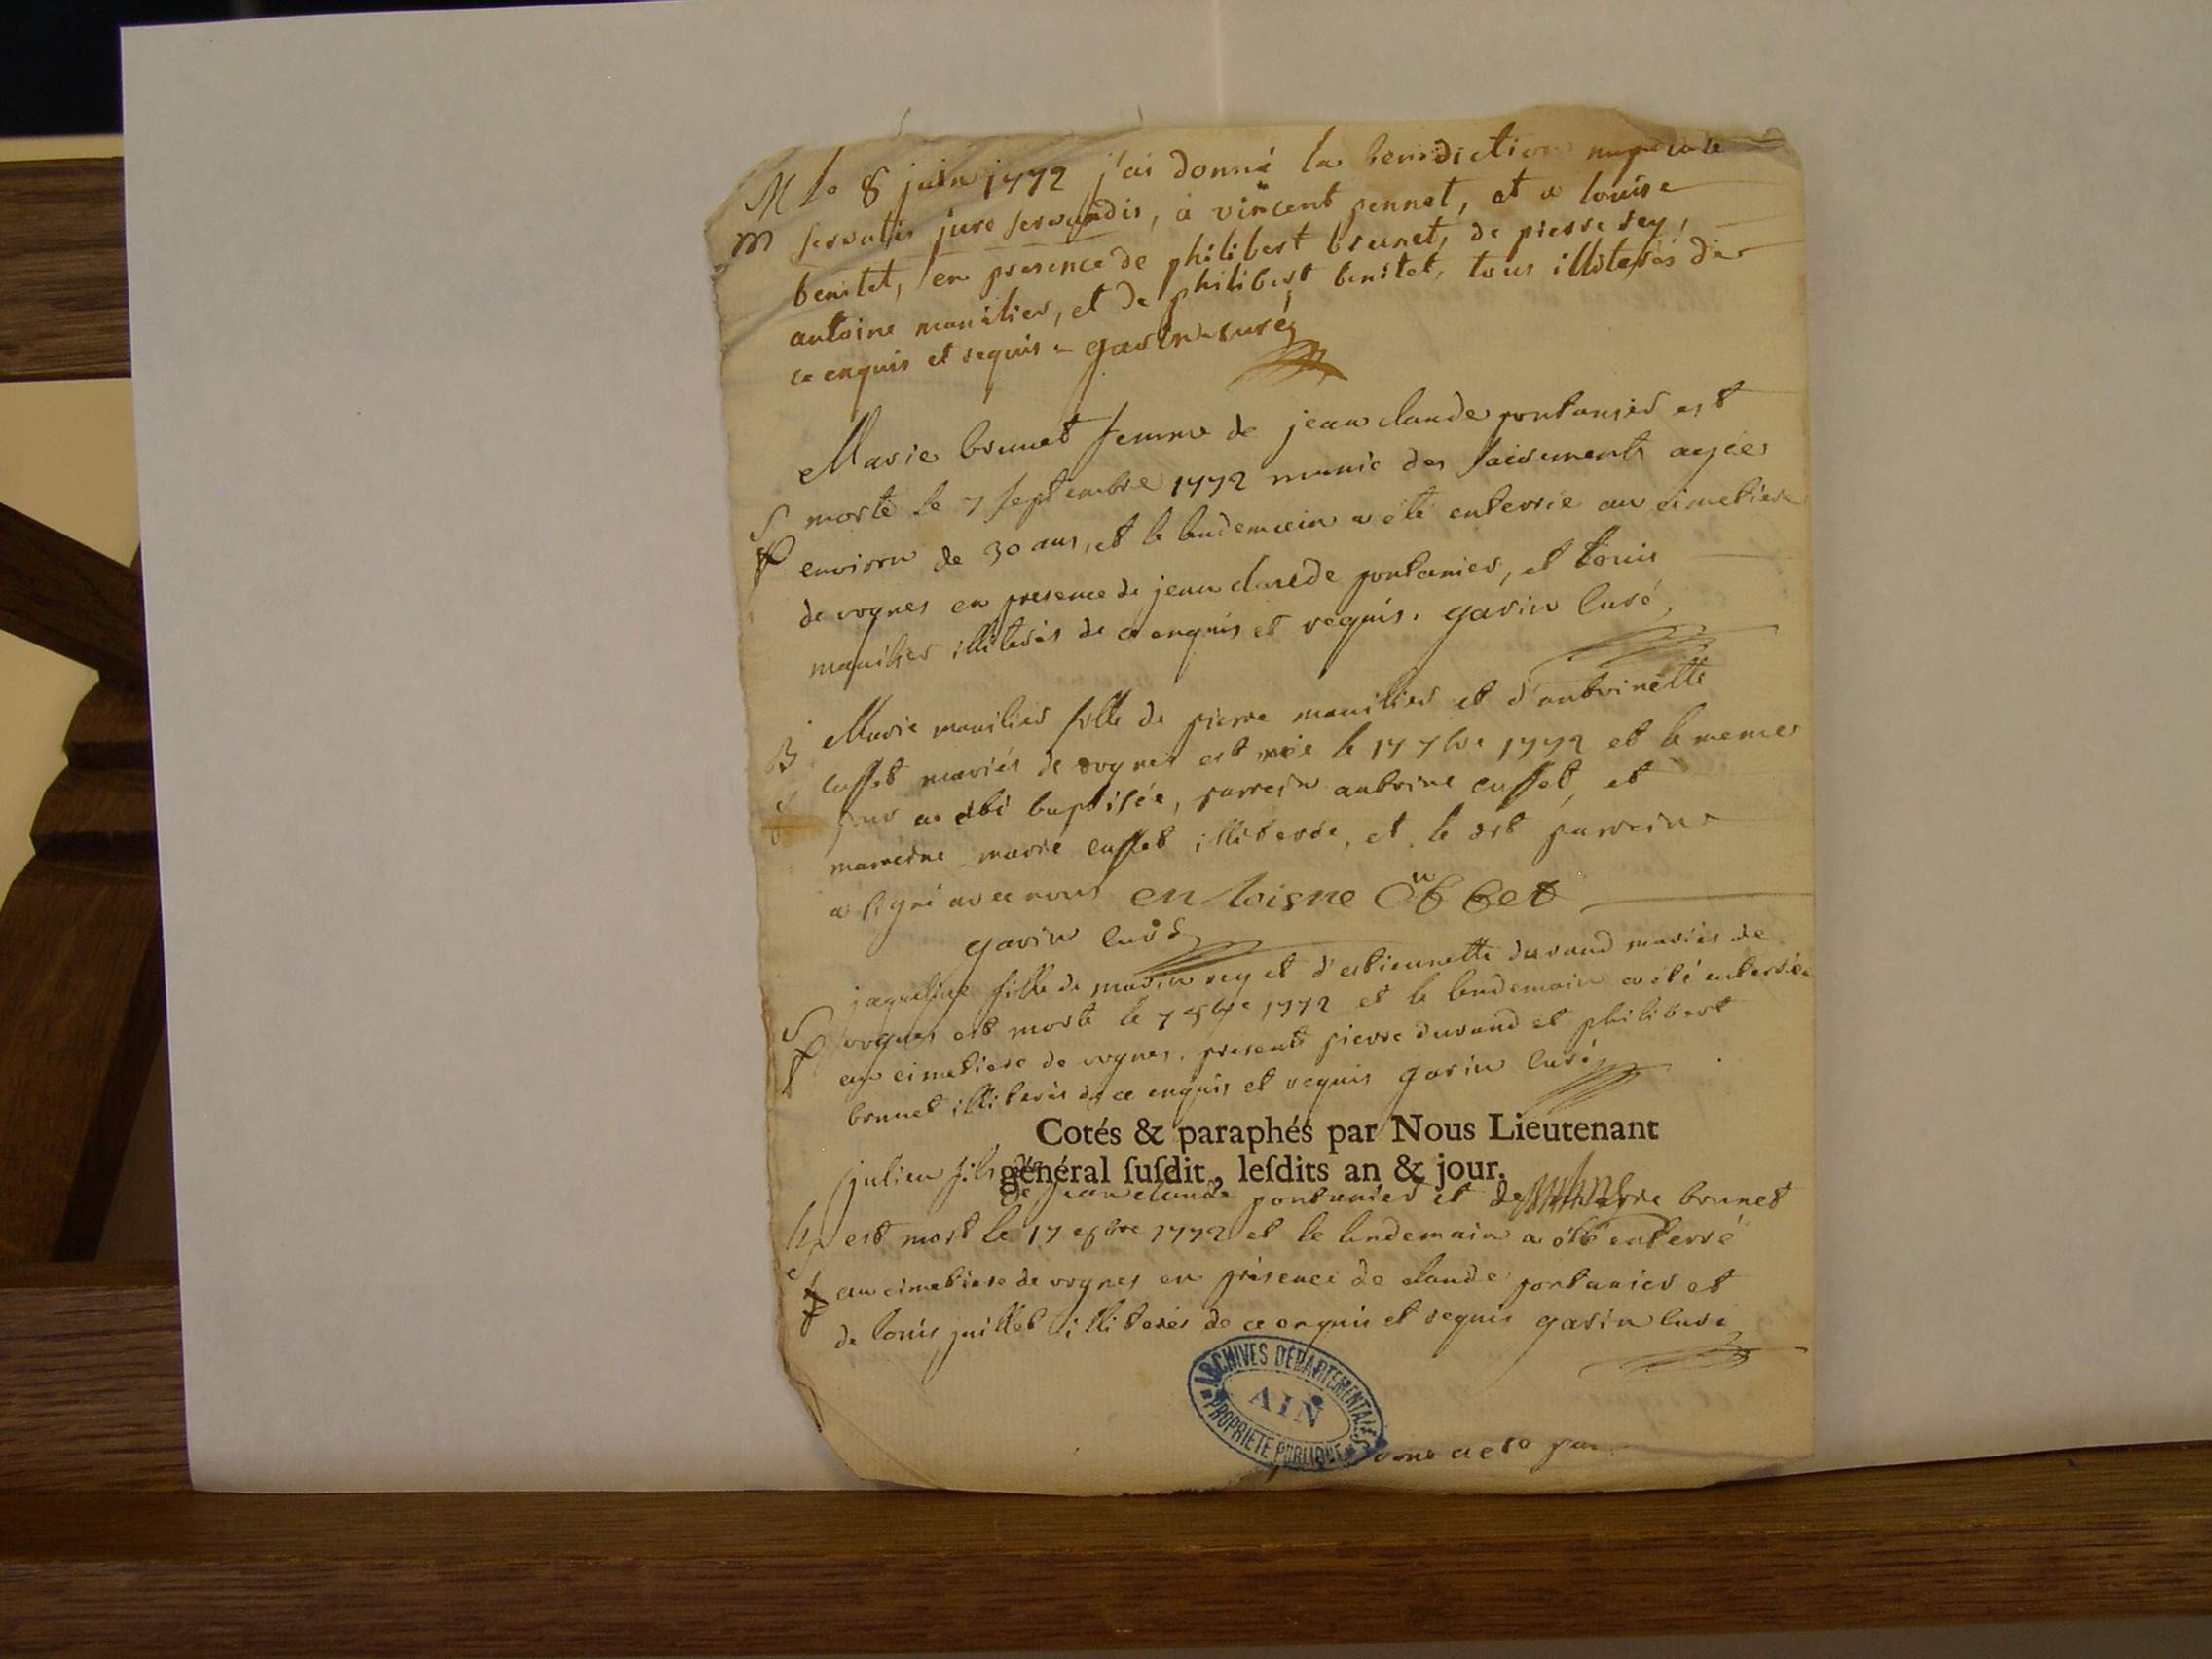 M le 8 juin 1772 j'ai donné la benediction nuptiale
m servatis jure servandis, a vincent pennet, et a louise
benitet, en presence de philibert brunet, de pierre rey,
antoine manilier, et de philibert benitet, tous illiterés de
ce enquis et requis - gavin curé
Marie brunet femme de jean claude pontanier est
S morte le 7 septembre 1772 munie des sacrements agée
environ de 30 ans, et le lendemain a été enterrée au cimetiere
de vognes en presence de jean claude pontanier, et louis
manilier illiterés de ce enquis et requis. gavin curé
Marie manilier fille de pierre manilier et d'antoinette
B cusset mariés de vognes est née le 17 7bre 1772 et le meme
jour a été baptisée, parrein antoine cusset, et
marreine marie cusset illiterée, et le dit parrein
a signé avec nous en toisne
gavin curé
jaqueline fille de rey et d'estiennette durand mariés de
S vognes est morte le 7 1772 et le lendemain a été enterrée
au cimetiere de vognes. presents pierre durand et philibert
brunet illiterés de ce enquis et requis gavin curé
Cotés & paraphés par Nous Lieutenant
général susdit, lesdits an & jour.
julien fils
de jean claude pontanier et de marie brunet
est mort le 17 1772 et le lendemain a été enterré
au cimetiere de vognes en présence de claude pontanier et
de louis juillet illiterés de ce enquis et requis gavin curé
ARCHIVES DÉPARTEMENTALES
AIN
PROPRIÉTÉ PUBLIQUE